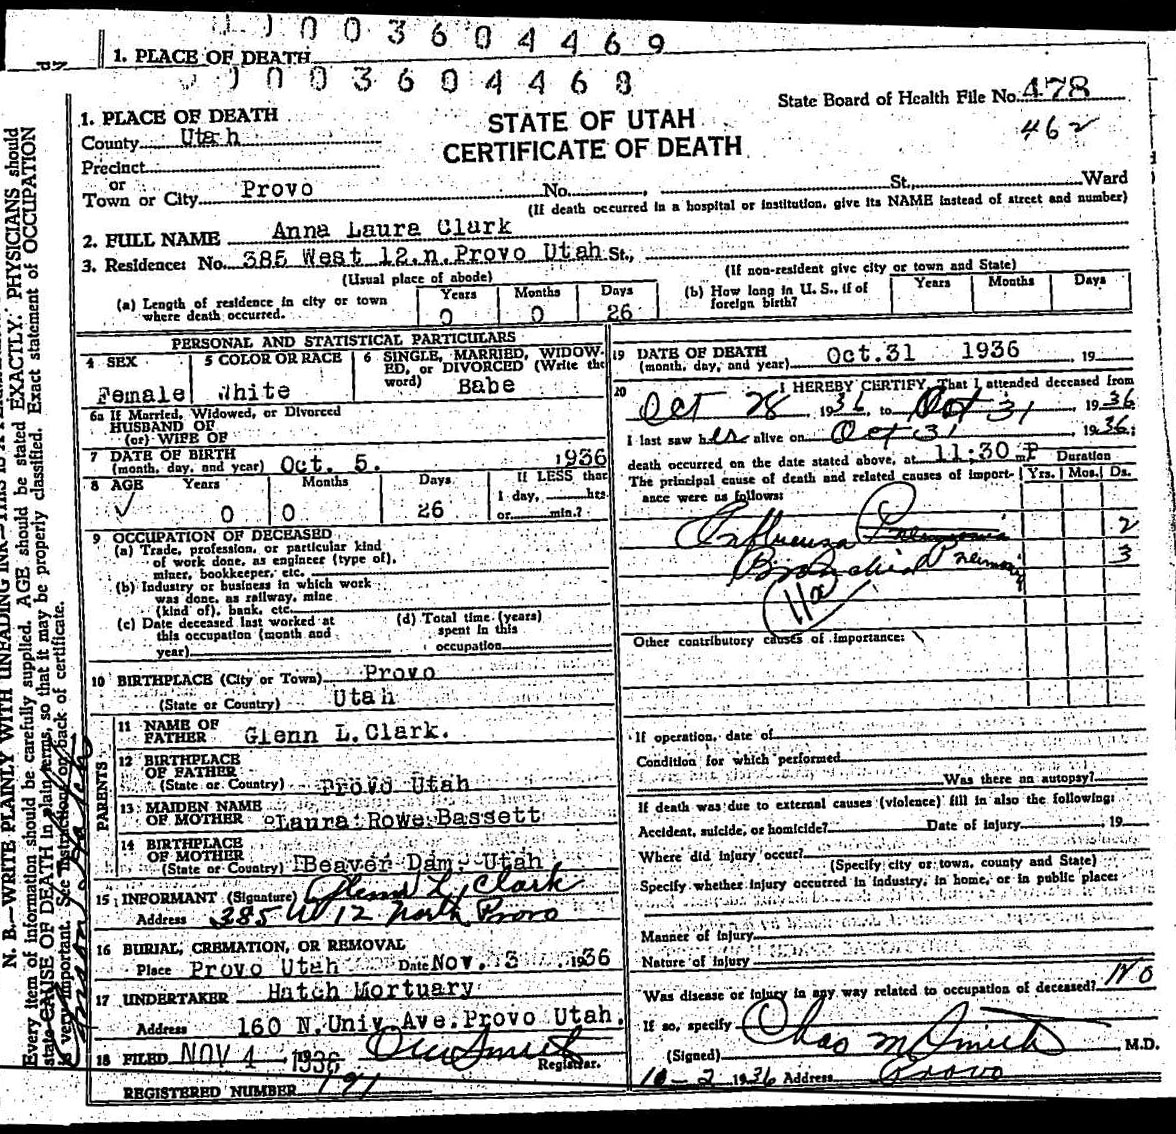 0003604469
1. PLACE OF DEATH
0003604468
State Board of Health File No. 478
462
1. PLACE OF DEATH
STATE OF UTAH
CERTIFICATE OF DEATH
County Utah
Precinct
or
Town or City Provo No. , St., Ward
(If death occurred in a hospital or institution, give its NAME instead of street and number)
2. FULL NAME Anna Laura Clark
3. Residence: No. 385 West 12.n.Provo Utah St.,
(Usual place of abode) (If non-resident give city or town and State)
(a) Length of residence in city or town where death occurred. Years 0 Months 0 Days 26
(b) How long in U. S., if of foreign birth? Years Months Days
PERSONAL AND STATISTICAL PARTICULARS
4 SEX Female
5 COLOR OR RACE White
6 SINGLE, MARRIED, WIDOWED, or DIVORCED (Write the word) Babe
6a If Married, Widowed, or Divorced
HUSBAND OF
(or) WIFE OF
7 DATE OF BIRTH
(month, day, and year) Oct. 5. 1936
8 AGE Years Months Days If LESS than
1 day, hrs.
0 0 26 or min.?
9 OCCUPATION OF DECEASED
(a) Trade, profession, or particular kind
of work done, as engineer (type of),
miner, bookkeeper, etc.
(b) Industry or business in which work
was done, as railway, mine
(kind of), bank, etc.
(c) Date deceased last worked at
this occupation (month and
year)
(d) Total time (years)
spent in this
occupation
10 BIRTHPLACE (City or Town) Provo
(State or Country) Utah
PARENTS
11 NAME OF
FATHER Glenn L.Clark.
12 BIRTHPLACE
OF FATHER
(State or Country) Provo Utah
13 MAIDEN NAME
OF MOTHER Laura Rowe Bassett
14 BIRTHPLACE
OF MOTHER
(State or Country) Beaver Dam, Utah
15 INFORMANT (Signature) Glenn L. Clark
Address 385 W 12 North Provo
16 BURIAL, CREMATION, OR REMOVAL
Place Provo Utah Date Nov. 3 1936
17 UNDERTAKER Hatch Mortuary
Address 160 N.Univ.Ave.Provo Utah.
18 FILED NOV 4 1936
Registrar.
REGISTERED NUMBER 191
19 DATE OF DEATH
(month, day, and year) Oct.31 1936 , 19
20 I HEREBY CERTIFY, That I attended deceased from
Oct 28 1936, to Oct 31 1936
I last saw her alive on Oct 31 1936;
death occurred on the date stated above, at 11:30 m P
The principal cause of death and related causes of importance were as follows:
Duration
Yrs. Mos. Ds.
Influenza Pneumonia 2
Bronchial Pneumonia 3
11a
Other contributory causes of importance:
If operation, date of
Condition for which performed
Was there an autopsy?
If death was due to external causes (violence) fill in also the following:
Accident, suicide, or homicide? Date of injury 19
Where did injury occur?
(Specify city or town, county and State)
Specify whether injury occurred in industry, in home, or in public place:
Manner of injury
Nature of injury
Was disease or injury in any way related to occupation of deceased? No
If so, specify
(Signed) Chas M Smith M.D.
10-2 1936 Address Provo
N. B.—WRITE PLAINLY WITH UNFADING INK—THIS IS A
Every item of information should be carefully supplied. AGE should be stated EXACTLY. PHYSICIANS should
state CAUSE OF DEATH in plain terms, so that it may be properly classified. Exact statement of OCCUPATION
is very important. See instructions on back of certificate.